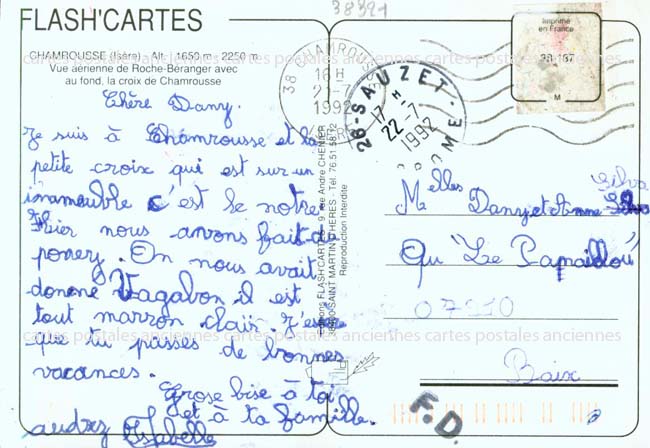 38321
FLASH'CARTES
CHAMROUSSE (Isère) Alt : 1650 m - 2250 m
Vue aérienne de Roche-Béranger avec
au fond, la croix de Chamrousse
Imprimé
en France
38-187
M
38 CHAMROUSSE
16 H
21-7
1992
26-SAUZET-DROME
17 H
22-7
1992
cartes postales anciennes cartes postales anciennes cartes postales anciennes
Chère Dany.
Je suis à Chamrousse et la
petite croix qui est sur un
immeuble c'est le notre.
Hier nous avons fait du
poney. On nous avait
donné Vagabon il est
tout marron clair. J'espère
que tu passes de bonnes
vacances.
Grose bise à toi
et à ta famille.
audrey Isabelle
Editions FLASH'CARTES - 9, rue André CHENIER
38400 SAINT MARTIN D'HERES - Tél. 76.51.58.12
Reproduction Interdite
Melles Dany et Anne Silva
Qu. "Le Papaillou"
07210
Baix
cartes postales anciennes cartes postales anciennes cartes postales anciennes
F.D.